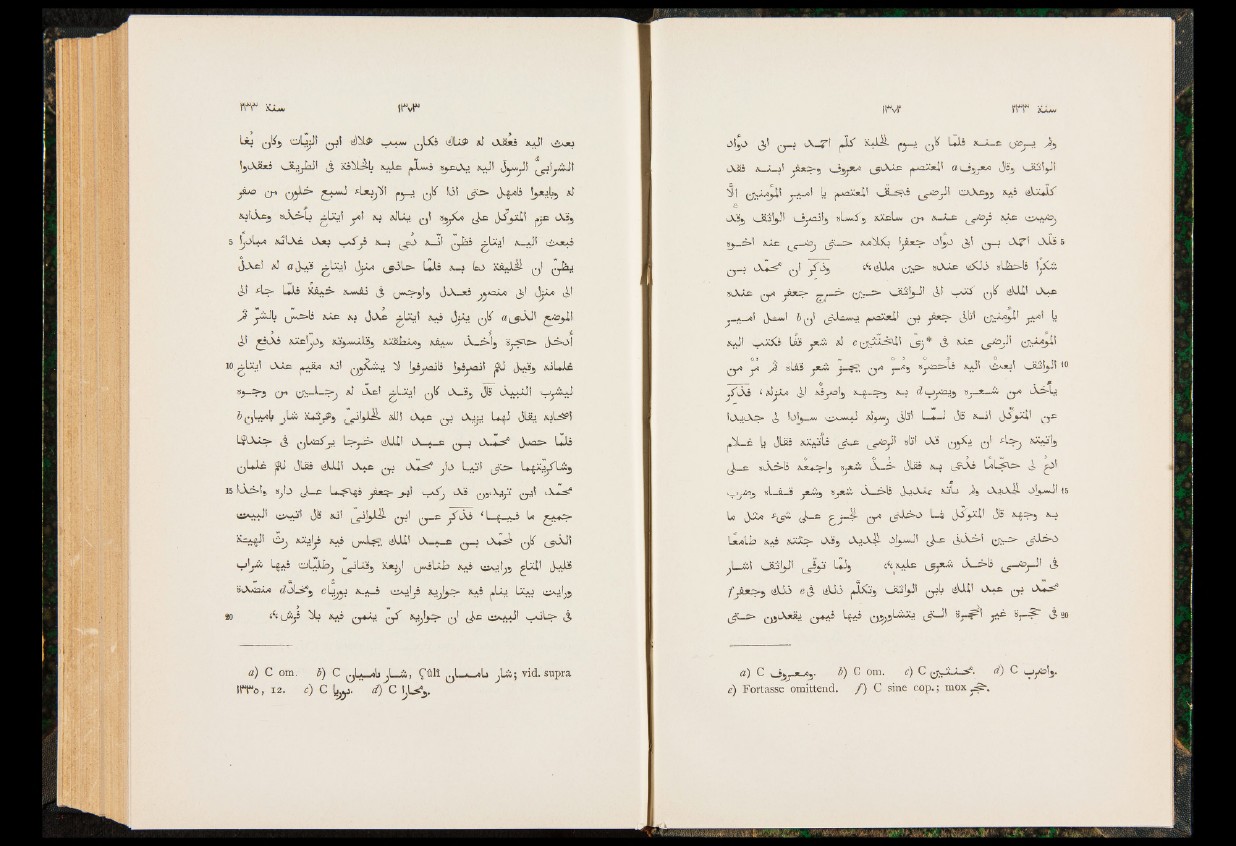 سنة ٢٣٣ ١٣٧٢
ولم يرض عنه فلمّا كان يوم الحلبة كلّم احمد بن ابى دوّاد
الواثق وقال معروف a المعتصم عندى معروف وجعفر ابنه فقد
كلّمتك فيه ووعدت الرضى فبحقّ المعتصم يا امير المؤمنين إلّا
رضيت عنه فرضى عنه من ساعته وكساه وانصرف الواثق وقد
5 قلّد احمد بن ابى دوّاد جعفرا بكلامه حتى رضى عنه اخوه
شكرا فاحظاه ذلك عنده حين ملك ۞ وذكر ان محمّد بن
عبد الملك كان كتب الى الواثق حين خرج جعفر من عنده
يا امير المؤمنين اتانى جعفر بن المعتصم يسئلنى ان b اسئل امير
المؤمنين الرضى عنه فى *زىّ المخنّثين c له شعر قفا فكتب اليه
10 الواثق ابعث اليه فأحضره ومُر من يجزّ شعر قفاه ثم مُر من
يأخذ من شعره ويضرب d به وجهه واصرفه الى منزله، فذكر
عن المتوكّل انه قال لمّا اتانى رسوله لبست سوادا لى جديدا
واتيته رجاء ان يكون قد اتاه الرضى عنى فأتيته فقال يا غلام
ادع لى حجّاما فدعى به فقال خذ شعره واجمعه فاخذه على
15 السواد الجديد ولم يأته بمنديل فاخذ شعره وشعر قفاه وضرب
به وجهه قال المتوكّل فما دخلنى من الجزع على شىء مثل ما
دخلنى حين اخذنى على السواد الجديد وقد جئته فيه طامعًا
فى الرضى فاخذ شعرى عليه ۞ ولمّا توفّى الواثق اشار
محمّد بن عبد الملك بابن الواثق وتكلّم فى e ذلك وجعفر f
20 فى حجرة غير الحجرة التى يتشاورون فيها فيمن يقعدون حتى
a) C ومعروف. b) C om. c) C محنثين. d) C واضرب.
e) Fortasse omittend. f) C sine cop.; mox حجر.
سنة ٢٣٣ ١٣٧٣
بعث اليه فعُقد له هناك فكان سبب هلاك ابن الزيّات وكان بُغا
الشرابىّ الرسول اليه يدعوه فسلّم عليه بالخلافة فى الطريق فعقدوا
له وبايعوا فامهل حتى اذا كان يوم الاربعاء لسبع خلون من صفر
وقد عزم المتوكّل على مكروه ان يناله به امر ايتاخ بأخذه وعذابه
5 فبعث اليه ايتاخ فظنّ انّه دُعى به فركب بعد غدائه مبادرًا
يظنّ ان الخليفة دعا به فلما حاذى منزل ايتاخ قيل a له اعدل
الى منزل ابى منصور فعدل واوجس فى نفسه خيفةً فلما جاء الى
الموضع الذى a كان ينزل فيه ايتاخ عُدل به عنه فاحسّ بالشرّ ثم
أدخل حجرة وأخذ سيفه ومنطقته وقلنسوته ودرّاعته فدُفع الى
10 غلمانه وقيل لهم انصرفوا فانصرفوا لا يشكّون انه مقيم عند ايتاخ
ليشرب النبيذ قال وقد كان ايتاخ اعدّ له رجلين من وجوه
اصحابه يقال لهما يزيد بن عبد الله الحلوانىّ وهرثمة شار باميان b
فلمّا حصل محمّد بن عبد الملك خرجا يركضان فى جندهما
وشاكريّتهما حتى اتيا دار محمّد بن عبد الملك فقال لهم غلمان
15 محمّد، اين تريدون قد ركب ابو جعفر فهجما على داره واخذا
جميع ما فيها، فذكر عن ابن الحلوانىّ انه قال اتيت البيت
الذى كان لمحمّد بن عبد الملك يجلس فيه فرايته رثّ الهيئة
قليل المتاع ورايت فيه طنافس اربعة وقنانىّ رطليّات فيها شراب
ورايت بيتا ينام فيه جواريه فرايت فيه بوريًا c ومخادّ d منضّدة
20 فى جانب البيت على ان جواريه كنّ ينمن فيه بلا فُرش ۞
a) C om. b) C شار ناميان, Çûlî شار نامسان; vid. supra
١٣٣٥, 12. c) C نوريا. d) C ومحارا.